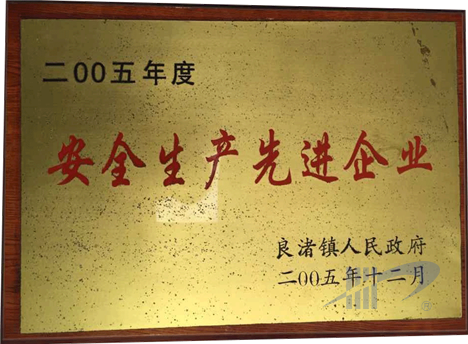 二00五年度
安全生产先进企业
良渚镇人民政府
二00五年十二月
®